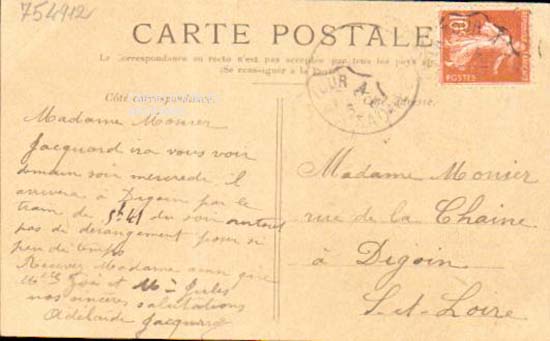 754912
CARTE POSTALE
La correspondance au recto n'est pas acceptée par tous les pays
(Se renseigner à la Poste)
Côté correspondance
10
POSTES
Madame Monier
Jacquard ira vous voir
demain soir mercredi il
arrivera à Digoin par le
tram de 5h41 du soir
pas de dérangement pour si
peu de temps
Recevez Madame ainsi que
Mlle et Mr Jules
nos sincères salutations
Adélaïde
Madame Monier
rue de la Chaine
à Digoin
S-et-Loire